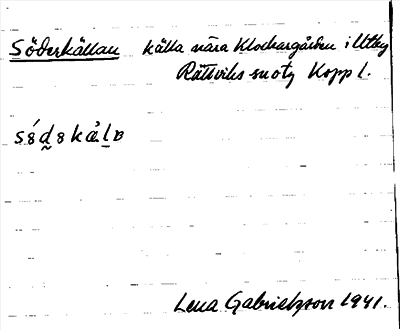 Söderkällan källa nära Klockargården i Utby
Rättviks snotg Kopp l.
Lena Gabrielsson 1941.